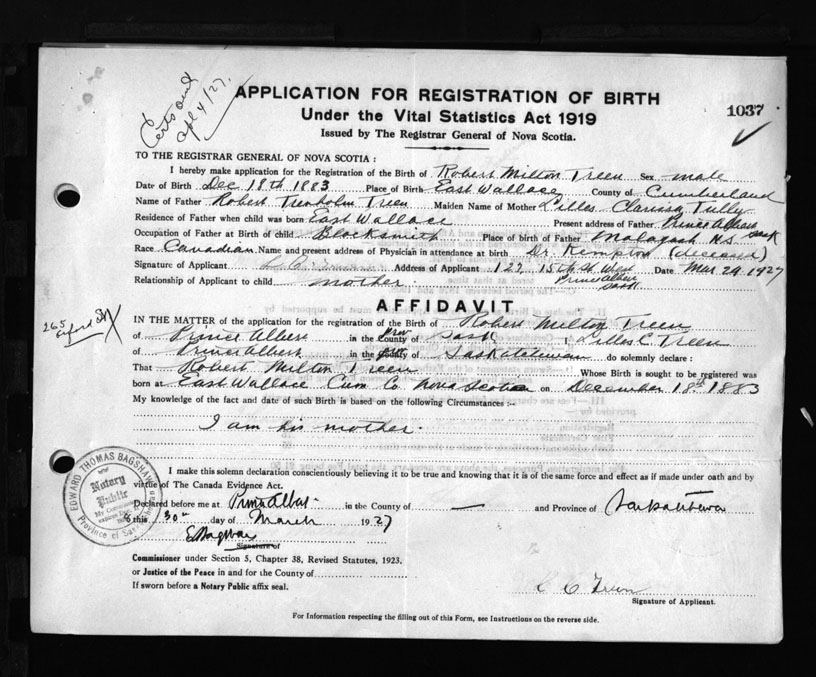 Certs out
apl 4/27.
APPLICATION FOR REGISTRATION OF BIRTH
Under the Vital Statistics Act 1919
1037
Issued by The Registrar General of Nova Scotia.
TO THE REGISTRAR GENERAL OF NOVA SCOTIA :
I hereby make application for the Registration of the Birth of Robert Milton Treen Sex male
Date of Birth Dec 18th 1883 Place of Birth East Wallace County of Cumberland
Name of Father Robert Trenholm Treen Maiden Name of Mother Lilles Clarissa Tully
Residence of Father when child was born East Wallace Present address of Father Prince Albert Sask
Occupation of Father at Birth of child Blacksmith Place of Birth of Father Malagash N.S.
Race Canadian Name and present address of Physician in attendance at birth Dr. Kempton (deceased)
Signature of Applicant L C Treen Address of Applicant 127 15th St West Prince Albert Sask. Date Mar 29 1927
Relationship of Applicant to child mother.
AFFIDAVIT
265
IN THE MATTER of the application for the registration of the Birth of Robert Milton Treen
of Prince Albert in the County Prov of Sask I, Lilles C Treen
of Prince Albert in the of Saskatchewan do solemnly declare :
That Robert Milton Treen Whose Birth is sought to be registered was
born at East Wallace Cum Co. Nova Scotia on December 18th 1883
My knowledge of the fact and date of such Birth is based on the following Circumstances :—
I am his mother.
I make this solemn declaration conscientiously believing it to be true and knowing that it is of the same force and effect as if made under oath and by
virtue of The Canada Evidence Act.
EDWARD THOMAS BAGSHAW
Notary
Public
My Commission
expires Dec
Province of Saskatchewan
Declared before me at Prince Albert in the County of — and Province of Saskatchewan
this 30th day of March 1927
E Bagshaw
Signature of
Commissioner under Section 5, Chapter 38, Revised Statutes, 1923,
or Justice of the Peace in and for the County of
If sworn before a Notary Public affix seal.
L C Treen
Signature of Applicant.
For Information respecting the filling out of this Form, see Instructions on the reverse side.